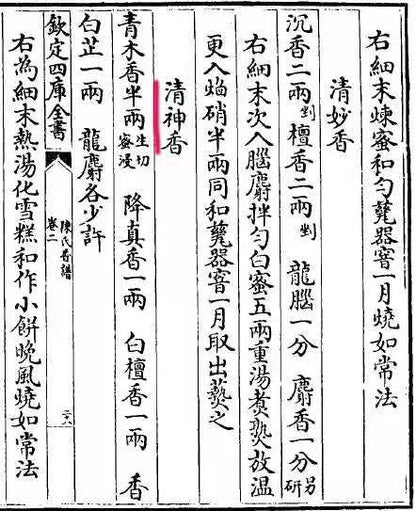 右細末煉蜜和勻甆器窨一月燒如常法
清妙香
沉香二兩剉檀香二兩剉 龍腦一分 麝香一分另研
右細末次入腦麝拌勻白蜜五兩重湯煑熟放温
更入焰硝半兩同和甆器窨一月取出爇之
清神香
青木香半兩生切蜜浸 降真香一兩 白檀香一兩 香
白芷一兩 龍麝各少許
欽定四庫全書 陳氏香譜 卷二 二八
右為細末熱湯化雪糕和作小餅晚風燒如常法